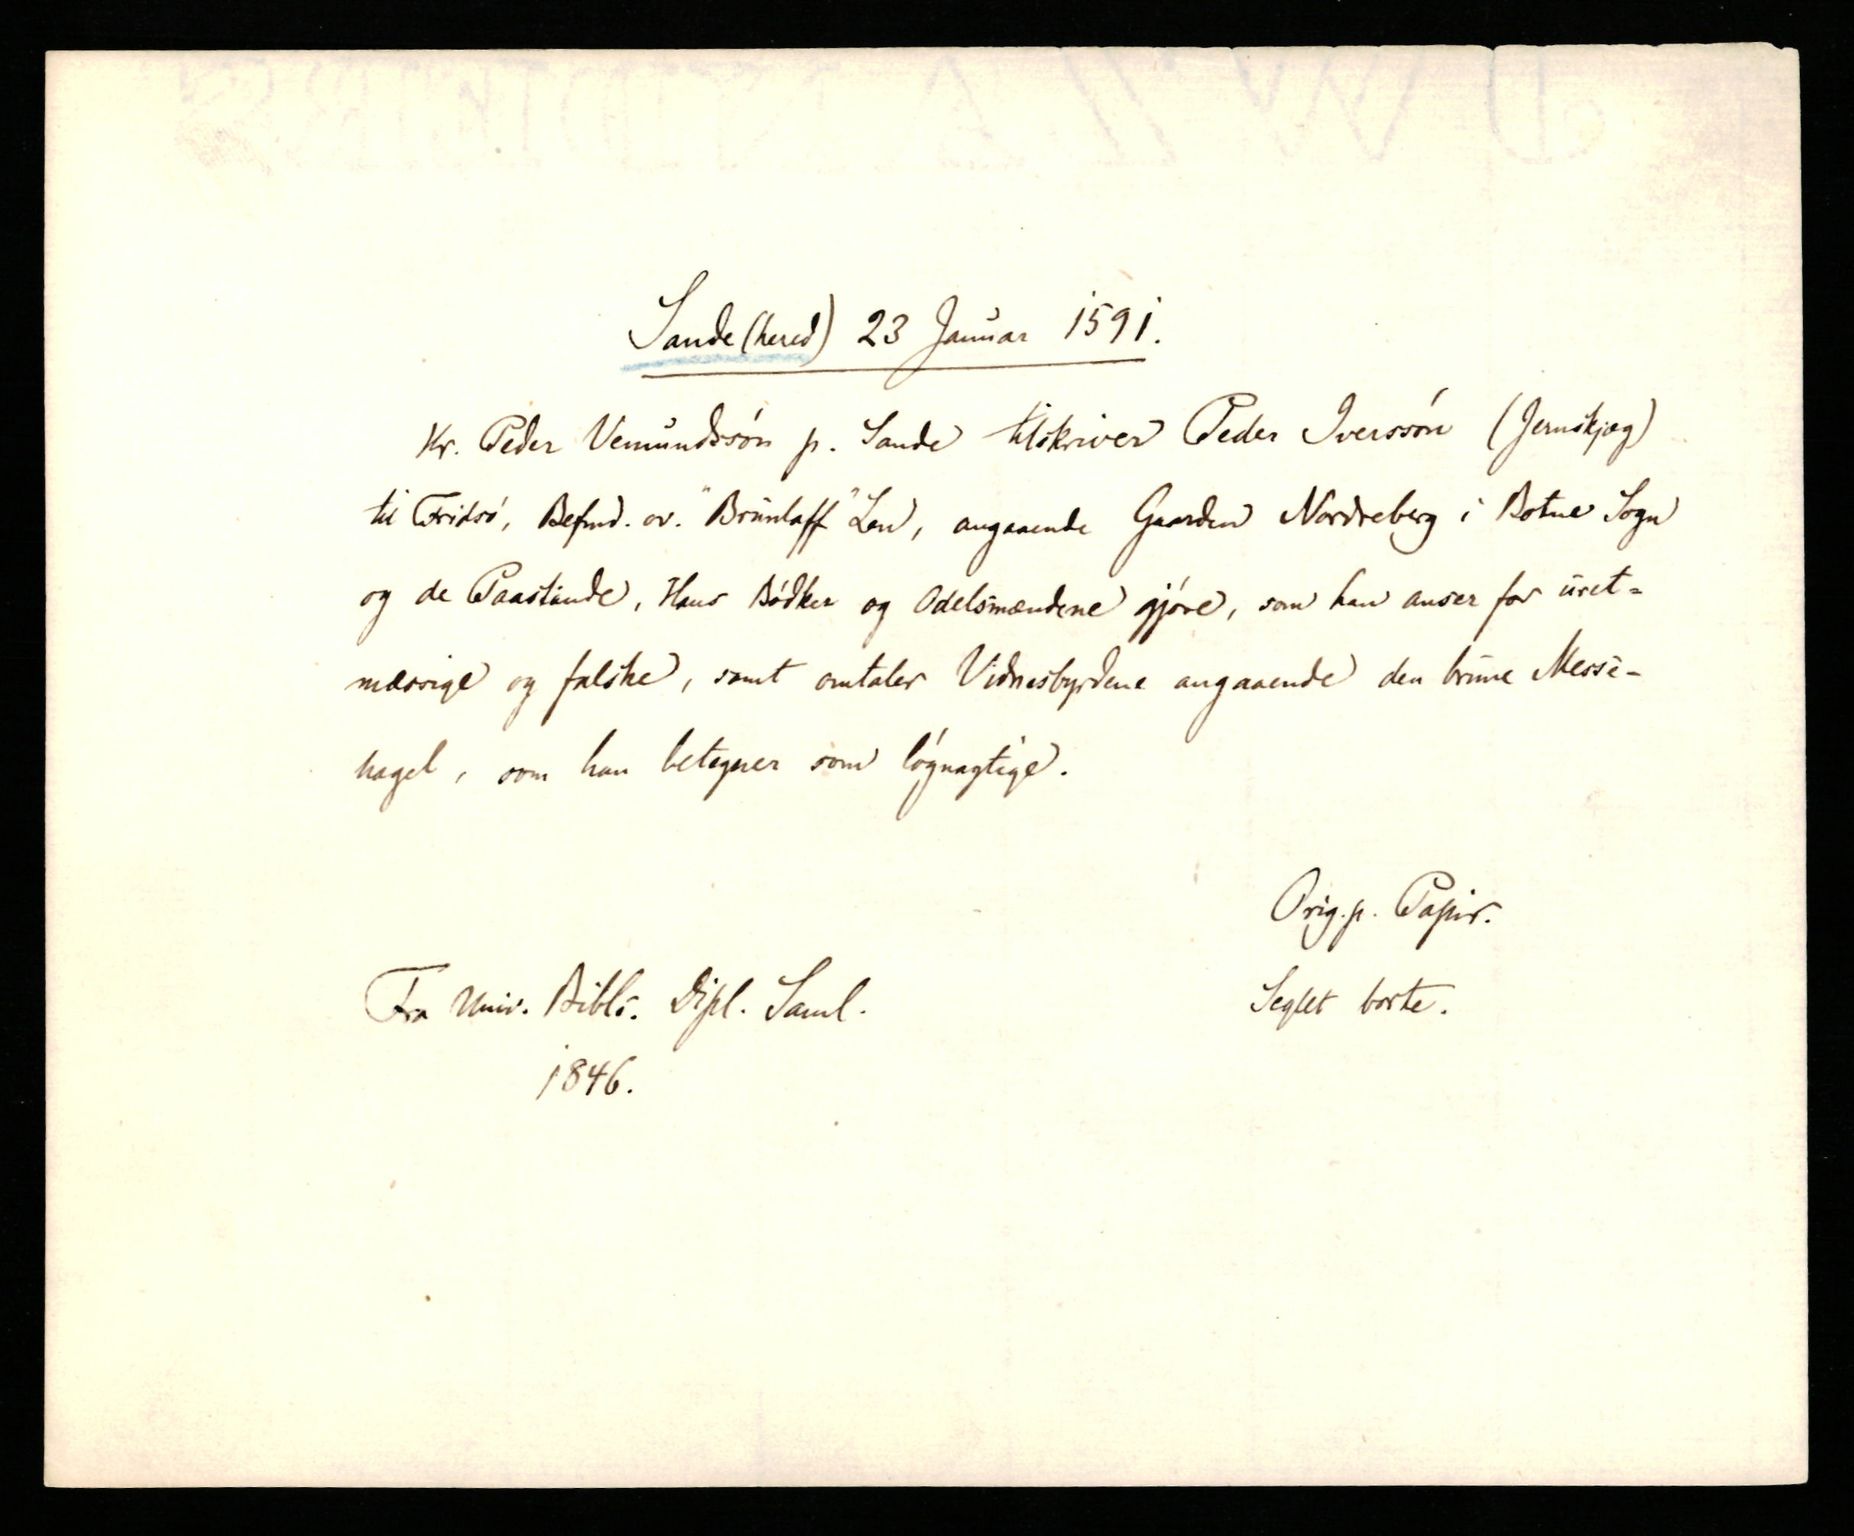 Sande(hered) 23 Januar 1591.
Hr. Peder Vemundssön p. Sande tilskriver Peder Iverssön (Jernskjæg)
til Fridsö, Befmd. ov. "Brunlaff" Len, angaaende Gaarden Nordreberg i Botne Sogn
og de Paastande, Hans Bödker og Odelsmændene gjöre, som han anser for uret-
mæssige og falske, samt omtaler Vidnesbyrdene angaaende den brune Messe-
hagel, som han betegner som lögnagtige.
Orig. p. Papir.
Fra Univ. Bibls. Dipl. Saml.
Seglet borte.
1846.